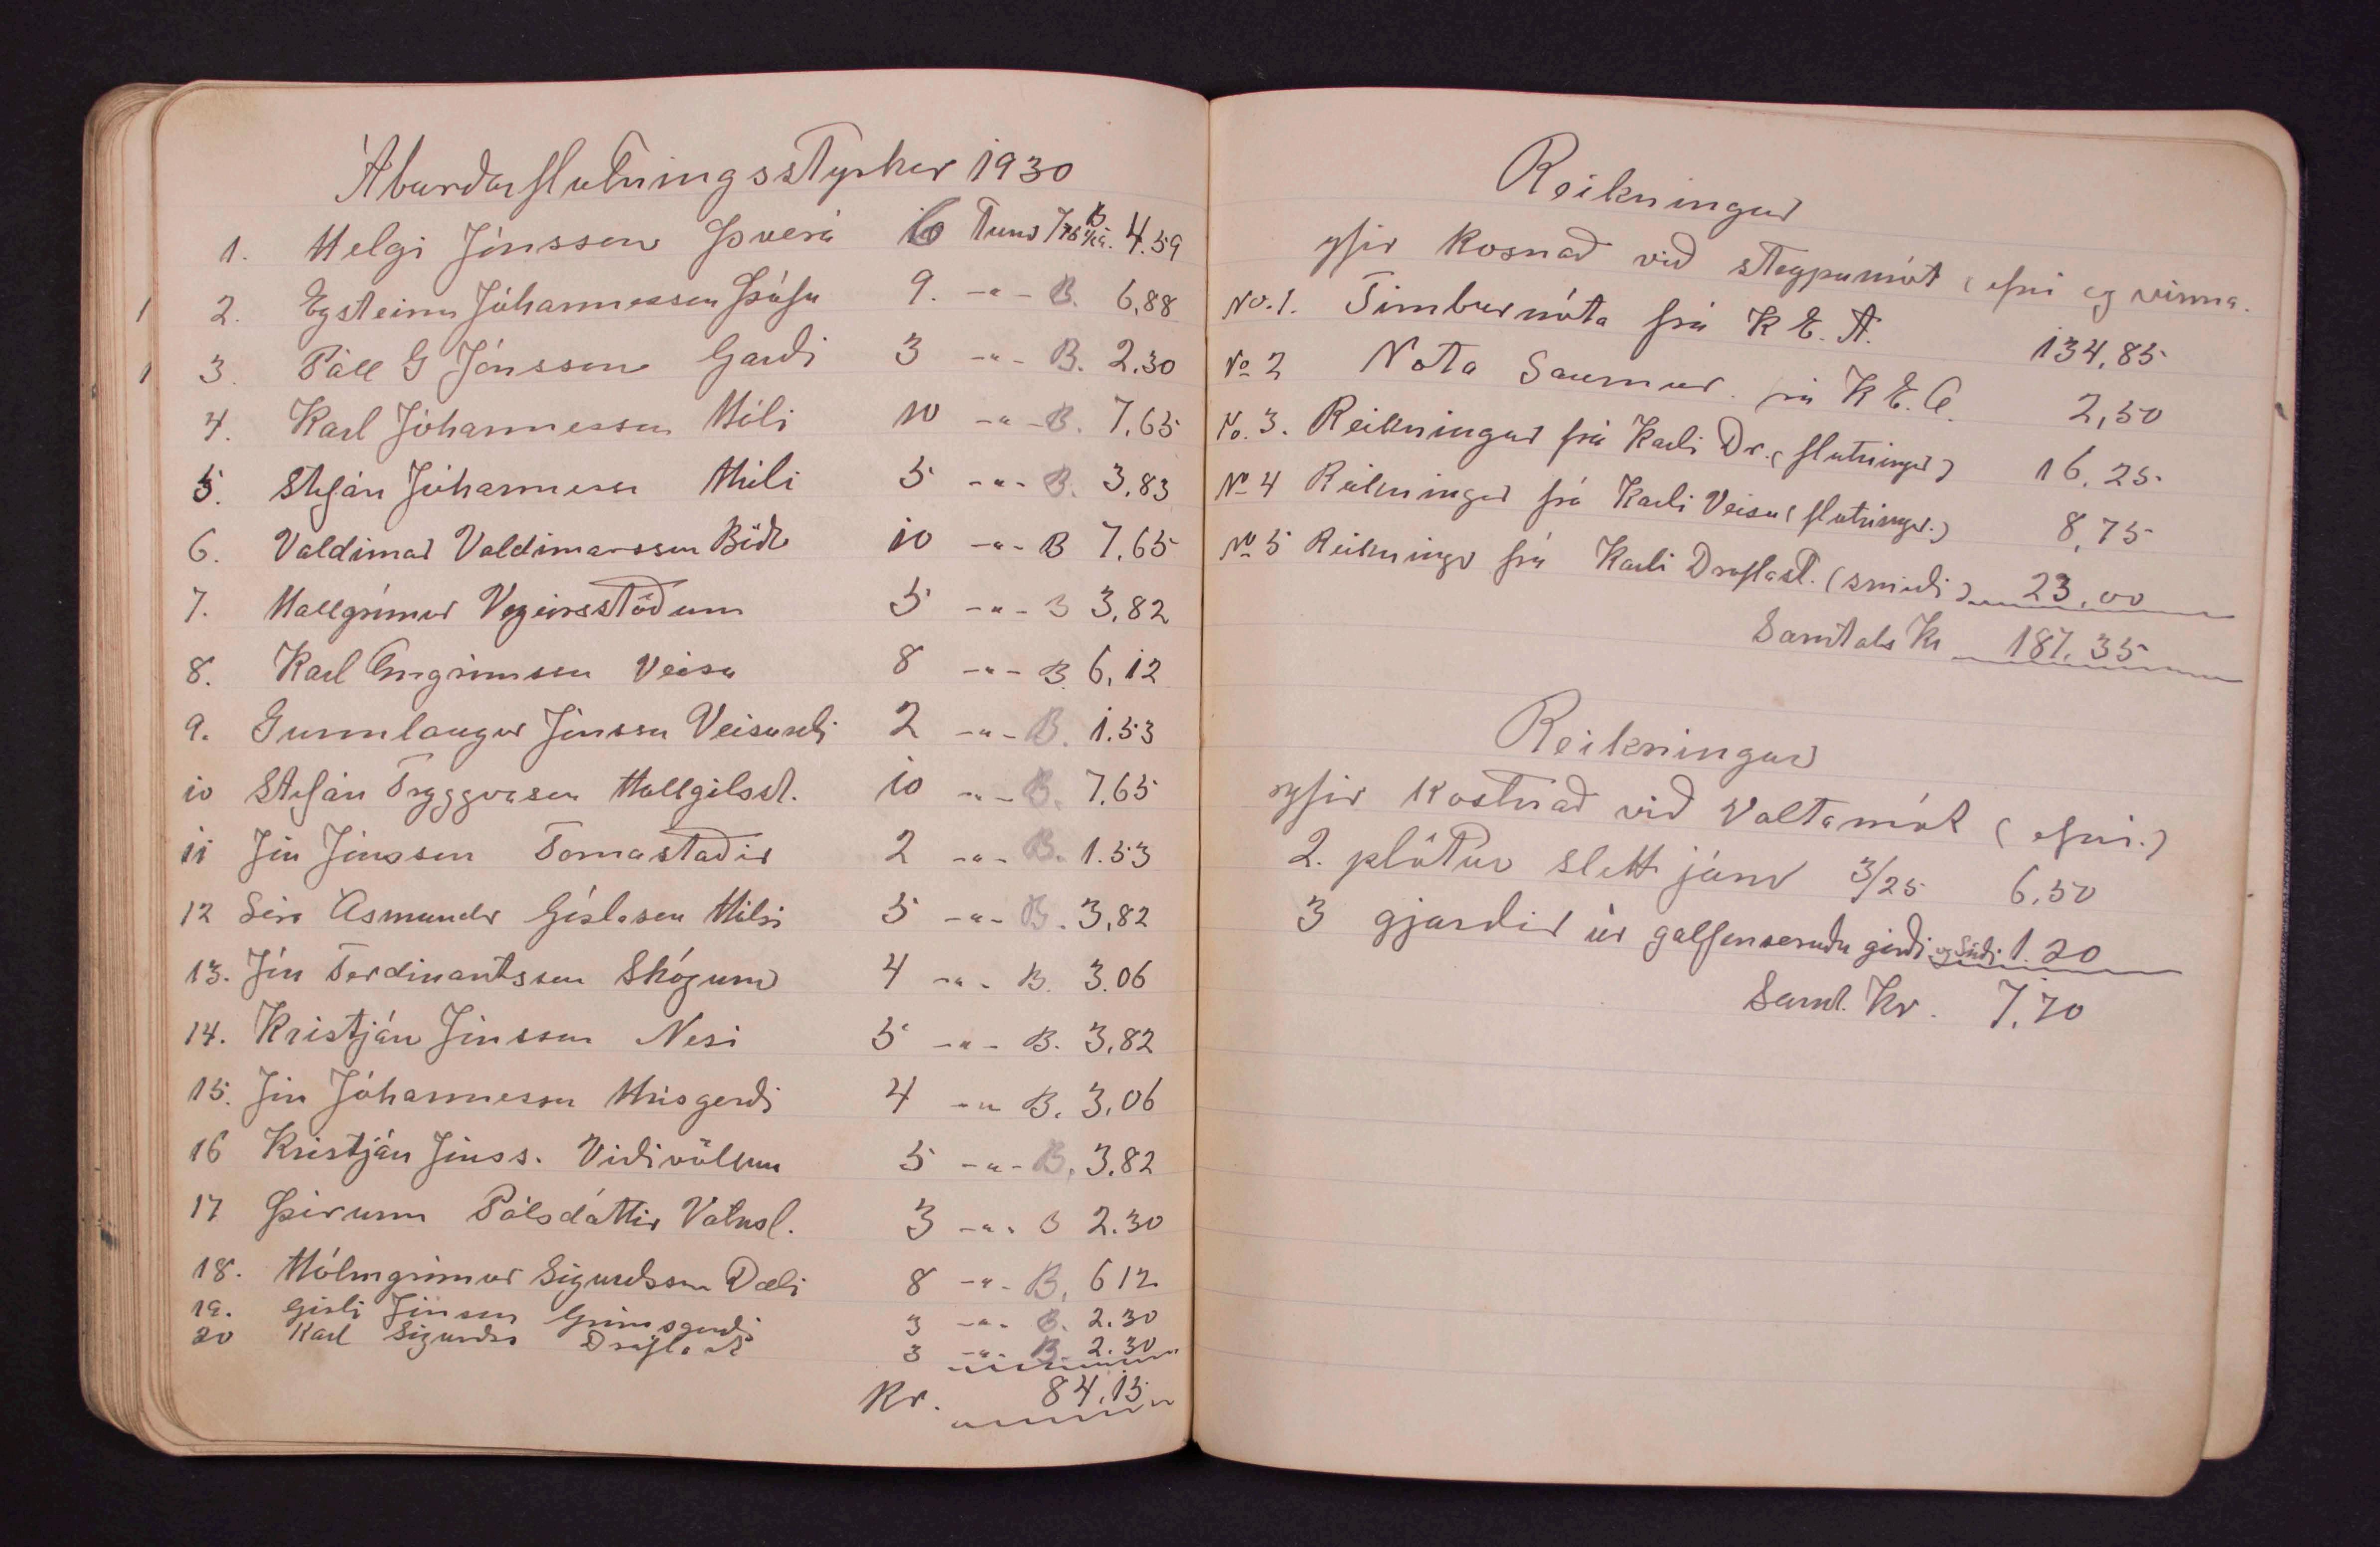 Áburðarflutningsstyrkur 1930
1. Helgi Jónsson Þverá 6 Tunn B. 4.59
1 2. Eysteinn Jóhannesson Þúfu 9. -"- B. 6,88
1 3. Páll G Jónsson Garði 3 -"- B. 2.30
4. Karl Jóhannesson Hóli 10 -"- B. 7,65
5. Stefán Jóhannesson Hóli 5 -"- B. 3,83
6. Valdimar Valdimarsson Böðv 10 -"- B 7,65
7. Hallgrímur Vegeirsstöðum 5 -"- B 3,82
8. Karl Arngrímsson Veisu 8 -"- B. 6,12
9. Gunnlaugur Jónsson Veisuseli 2 -"- B. 1.53
10 Stefán Tryggvason Hallgilsst. 10 -"- B. 7,65
11 Jón Jónsson Fornastaðir 2 -"- B. 1.53
12 Séra Ásmundr Gíslason Hálsi 5 -"- B. 3,82
13. Jón Ferdinantsson Skógum 4 -"- B. 3.06
14. Kristján Jónsson Nesi 5 -"- B. 3,82
15. Jón Jóhannesson Hrísgerði 4 -"- B. 3,06
16 Kristján Jónss. Víðivöllum 5 -"- B. 3.82
17 Þórunn Pálsdóttir Vatnsl. 3 -"- B 2.30
18. Hólmgrímur Sigurðsson Dæli 8 -"- B. 6 12
19. Gísli Jónsson Grímsgerði 3 -"- B. 2.30
20 Karl Sigurðss Draflast 3 -"- B. 2.30
Kr. 84,15
Reikningur
yfir Kosnað við steypumót (efni og vinna.
No. 1. Timburnóta frá K E. A. 134,85
No 2 Nota Saumur frá K E. A. 2,50
No. 3. Reikningur frá Karli Dr. (flutningur) 16,25
No 4 Reikningur frá Karli Veisu (flutningur.) 8,75
No 5 Reikningr frá Karli Draflast. (smíði) 23,00
Samtals Kr 187.35
Reikningur
yfir Kostnað við Valtamót (efni.)
2. plötur slétt járn 3/25 6,50
3 gjarðir úr galfenseruðu girði og Súði 1.20
Samt. Kr. 7,70